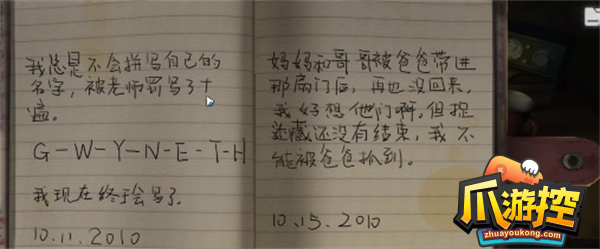 我总是不会拼写自己的
名字，被老师罚写了十
遍。
G-W-Y-N-E-T-H
我现在终于会写了。
10.11.2010
妈妈和哥哥被爸爸带进
那扇门后，再也没回来，
我好想他们啊。但捉
迷藏还没有结束，我不
能被爸爸抓到。
10.15.2010
爪游控
zhuayoukong.com